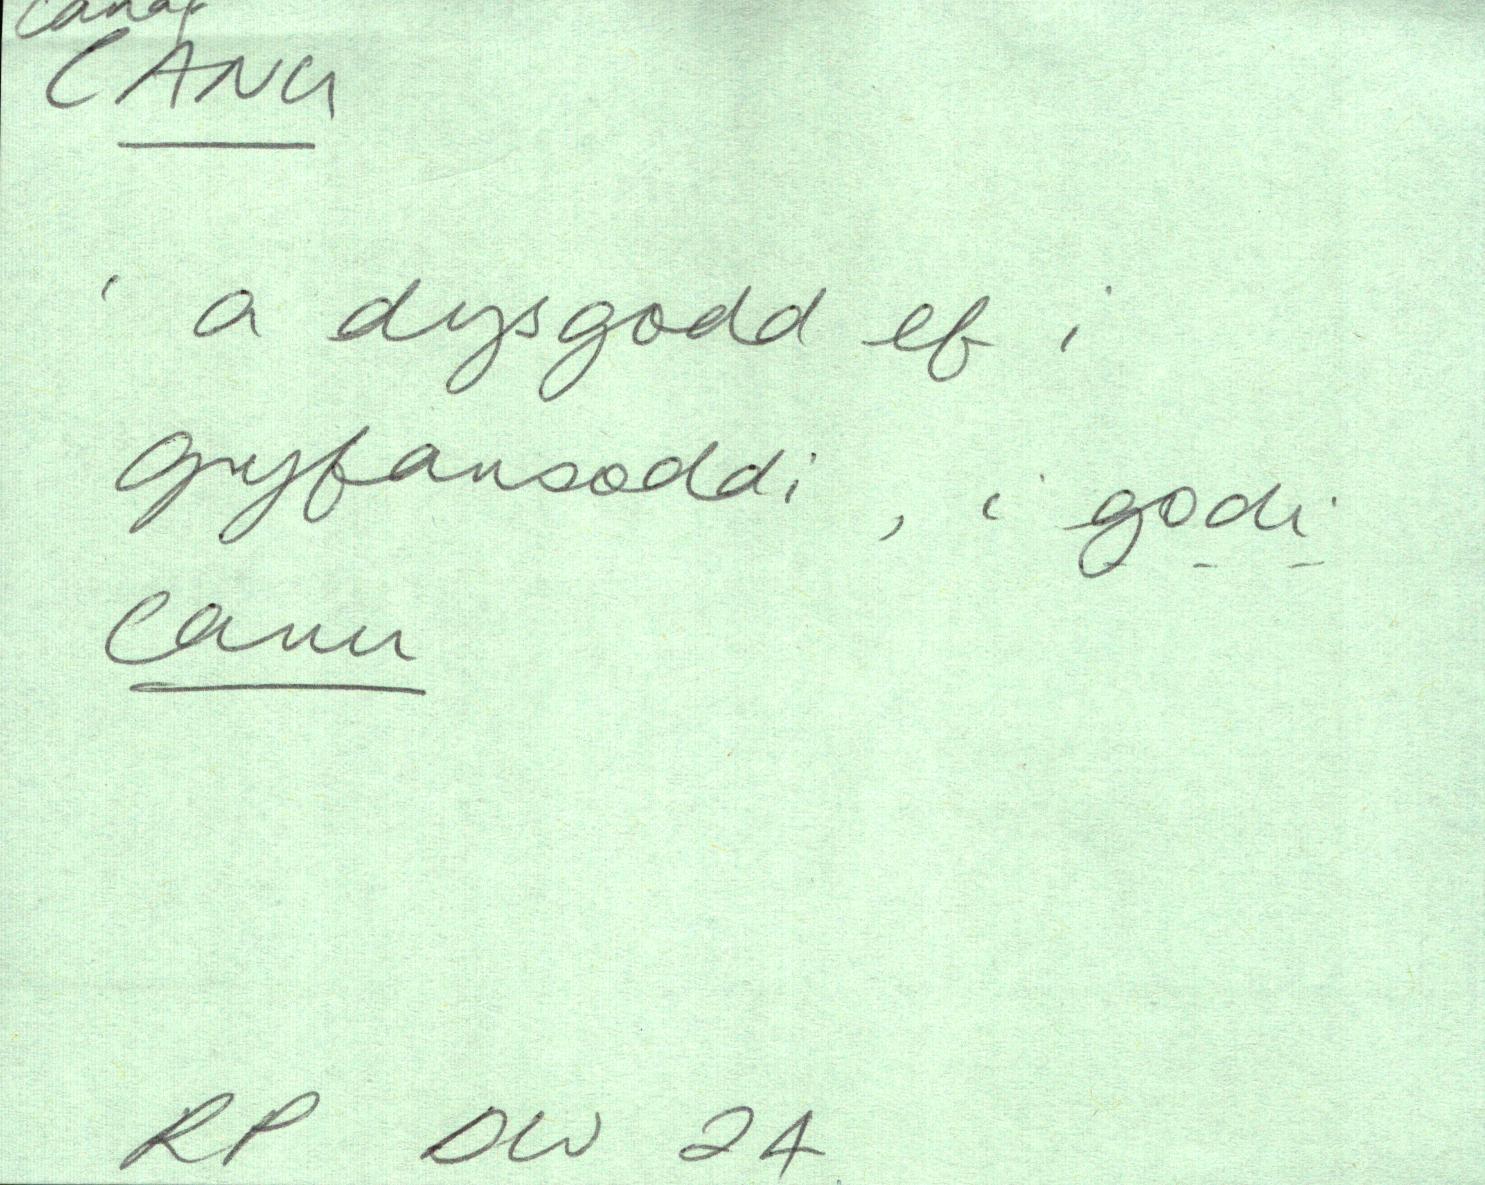 canaf
CANU
' a dysgodd ef i
gyfansoddi, i godi
canu
RP DW 24